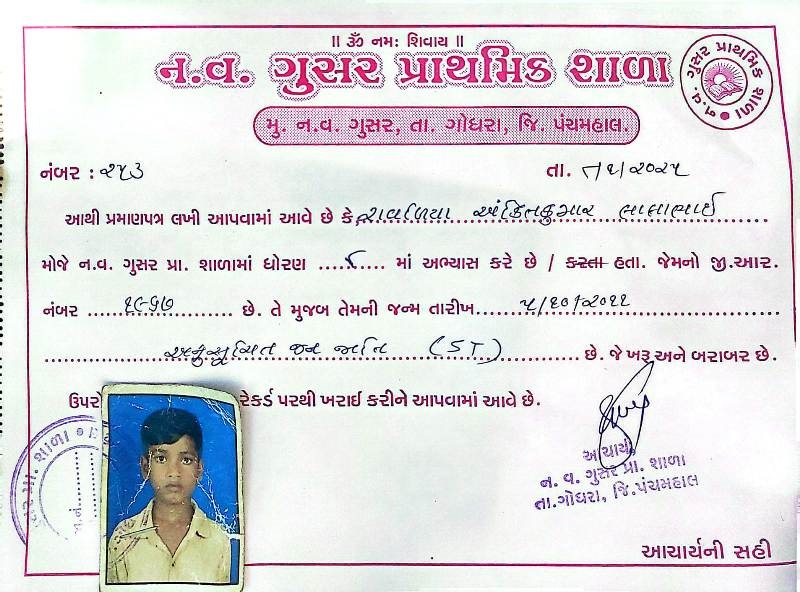 || ૐ નમ: શિવાય ||
ન.વ. ગુસર પ્રાથમિક શાળા
ન.વ. ગુસર પ્રાથમિક શાળા
મુ. ન.વ. ગુસર, તા. ગોધરા, જિ. પંચમહાલ.
નંબર : ૨૫૩ તા. /૨૦૨૫
આથી પ્રમાણપત્ર લખી આપવામાં આવે છે કે, રાવળિયા અંકિતકુમાર લાલાભાઈ
મોજે ન.વ. ગુસર પ્રા. શાળામાં ધોરણ ........ માં અભ્યાસ કરે છે / કરતા હતા. જેમનો જી.આર.
નંબર ........ છે. તે મુજબ તેમની જન્મ તારીખ ૫/૧૦/૨૦૧૧
અનુસૂચિત જન જાતિ (ST) છે. જે ખરૂ અને બરાબર છે.
ઉપરો રેકર્ડ પરથી ખરાઈ કરીને આપવામાં આવે છે.
સર પ્રા. શાળા
આચાર્ય
ન. વ. ગુસર પ્રા. શાળા
તા.ગોધરા, જિ.પંચમહાલ
આચાર્યની સહી